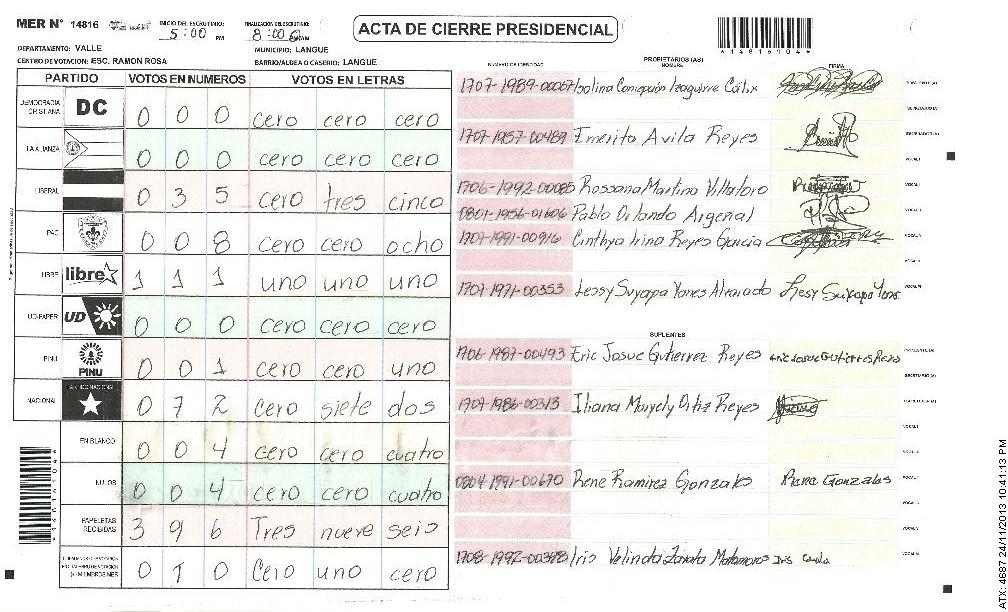 MER N° 14816 INICIO DEL ESCRUTINIO: 5:00 PM FINALIZACION DEL ESCRUTINIO: 8:00 ACTA DE CIERRE PRESIDENCIAL
*14816104*
DEPARTAMENTO: VALLE MUNICIPIO: LANGUE
CENTRO DE VOTCION: ESC. RAMON ROSA BARRIO/ALDEA O CASERIO: LANGUE
PARTIDO VOTOS EN NUMEROS VOTOS EN LETRAS
DEMOCRACIA CRISTIANA DC 0 0 0 cero cero cero
LA ALIANZA 0 0 0 cero cero cero
LIBERAL 0 3 5 cero tres cinco
PAC 0 0 8 cero cero ocho
LIBRE libre 1 1 1 uno uno uno
UD-FAPER UD 0 0 0 cero cero cero
PINU PINU 0 0 1 cero cero uno
NACIONAL PARTIDO NACIONAL 0 7 2 cero siete dos
EN BLANCO 0 0 4 cero cero cuatro
NULOS 0 0 4 cero cero cuatro
PAPELETAS RECIBIDAS 3 9 6 Tres nueve seis
0 1 0 Cero uno cero
NUMERO DE IDENTIDAD PROPIETARIOS (AS) NOMBRE FIRMA
1707-1989-00067 Isolina Concepción Izaguirre Cálix PRESIDENTE (A)
SECRETARIO (A)
1707-1957-00489 Emerito Avila Reyes ESCRUTADOR (A)
VOCAL I
1706-1992-00085 Rossana Martino Villatoro
0801-1956-01606 Pablo Orlando Argeñal
1707-1991-00916 Cinthya Irina Reyes Garcia
1707-1971-00353 Lessy Suyapa Yanes Alvarado
SUPLENTES
1706-1987-00493 Eric Josue Gutierrez Reyes PRESIDENTE (A)
SECRETARIO (A)
1707-1986-00313 Iliana Mayely Ortiz Reyes ESCRUTADOR (A)
VOCAL I
1991-00670 Rene Ramirez Gonzales
Iris Velinda Zavala Matamoros
*14816104*
ATX: 4687 24/11/2013 10:41:13 PM